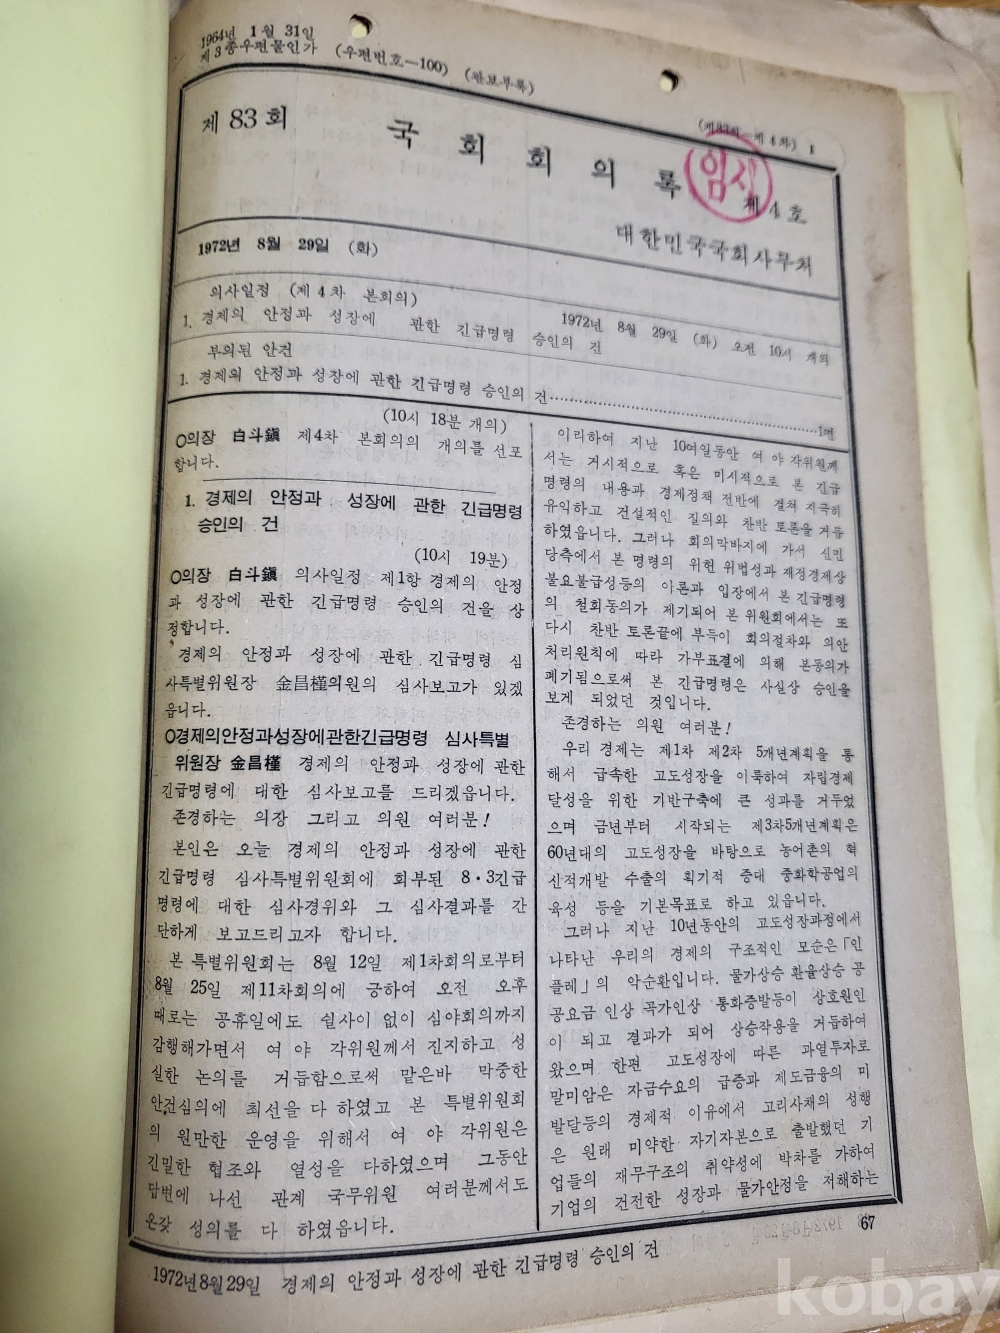 1964년 1월 31일
제3종우편물인가 (우편번호—100) (관보부록)
(제83회—제4차) 1
제83회 국회회의록 제4호
임시
대한민국국회사무처
1972년 8월 29일 (화)
의사일정 (제4차 본회의)
1972년 8월 29일 (화) 오전 10시 개의
1. 경제의 안정과 성장에 관한 긴급명령 승인의 건
부의된 안건
1. 경제의 안정과 성장에 관한 긴급명령 승인의 건……1면
(10시 18분 개의)
○의장 白斗鎭 제4차 본회의의 개의를 선포
합니다.
1. 경제의 안정과 성장에 관한 긴급명령
승인의 건
(10시 19분)
○의장 白斗鎭 의사일정 제1항 경제의 안정
과 성장에 관한 긴급명령 승인의 건을 상
정합니다.
경제의 안정과 성장에 관한 긴급명령 심
사특별위원장 金昌槿의원의 심사보고가 있겠
읍니다.
○경제의안정과성장에관한긴급명령 심사특별
위원장 金昌槿 경제의 안정과 성장에 관한
긴급명령에 대한 심사보고를 드리겠읍니다.
존경하는 의장 그리고 의원 여러분!
본인은 오늘 경제의 안정과 성장에 관한
긴급명령 심사특별위원회에 회부된 8·3긴급
명령에 대한 심사경위와 그 심사결과를 간
단하게 보고드리고자 합니다.
본 특별위원회는 8월 12일 제1차회의로부터
8월 25일 제11차회의에 긍하여 오전 오후
때로는 공휴일에도 쉴사이 없이 심야회의까지
감행해가면서 여 야 각위원께서 진지하고 성
실한 논의를 거듭함으로써 맡은바 막중한
안건심의에 최선을 다 하였고 본 특별위원회
의 원만한 운영을 위해서 여 야 각위원은
긴밀한 협조와 열성을 다하였으며 그동안
답변에 나선 관계 국무위원 여러분께서도
온갖 성의를 다 하였읍니다.
이리하여 지난 10여일동안 여 야 각위원께
서는 거시적으로 혹은 미시적으로 본 긴급
명령의 내용과 경제정책 전반에 걸쳐 지극히
유익하고 건설적인 질의와 찬반 토론을 거듭
하였읍니다. 그러나 회의막바지에 가서 신민
당측에서 본 명령의 위헌 위법성과 재정경제상
불요불급성등의 이론과 입장에서 본 긴급명령
의 철회동의가 제기되어 본 위원회에서는 또
다시 찬반 토론끝에 부득이 회의절차와 의안
처리원칙에 따라 가부표결에 의해 본동의가
폐기됨으로써 본 긴급명령은 사실상 승인을
보게 되었던 것입니다.
존경하는 의원 여러분!
우리 경제는 제1차 제2차 5개년계획을 통
해서 급속한 고도성장을 이룩하여 자립경제
달성을 위한 기반구축에 큰 성과를 거두었
으며 금년부터 시작되는 제3차5개년계획은
60년대의 고도성장을 바탕으로 농어촌의 혁
신적개발 수출의 획기적 증대 중화학공업의
육성 등을 기본목표로 하고 있읍니다.
그러나 지난 10년동안의 고도성장과정에서
나타난 우리의 경제의 구조적인 모순은「인
플레」의 악순환입니다. 물가상승 환율상승 공
공요금 인상 곡가인상 통화증발등이 상호원인
이 되고 결과가 되어 상승작용을 거듭하여
왔으며 한편 고도성장에 따른 과열투자로
말미암은 자금수요의 급증과 제도금융의 미
발달등의 경제적 이유에서 고리사채의 성행
은 원래 미약한 자기자본으로 출발했던 기
업들의 재무구조의 취약성에 박차를 가하여
기업의 건전한 성장과 물가안정을 저해하는
67
1972년8월29일 경제의 안정과 성장에 관한 긴급명령 승인의 건
kobay